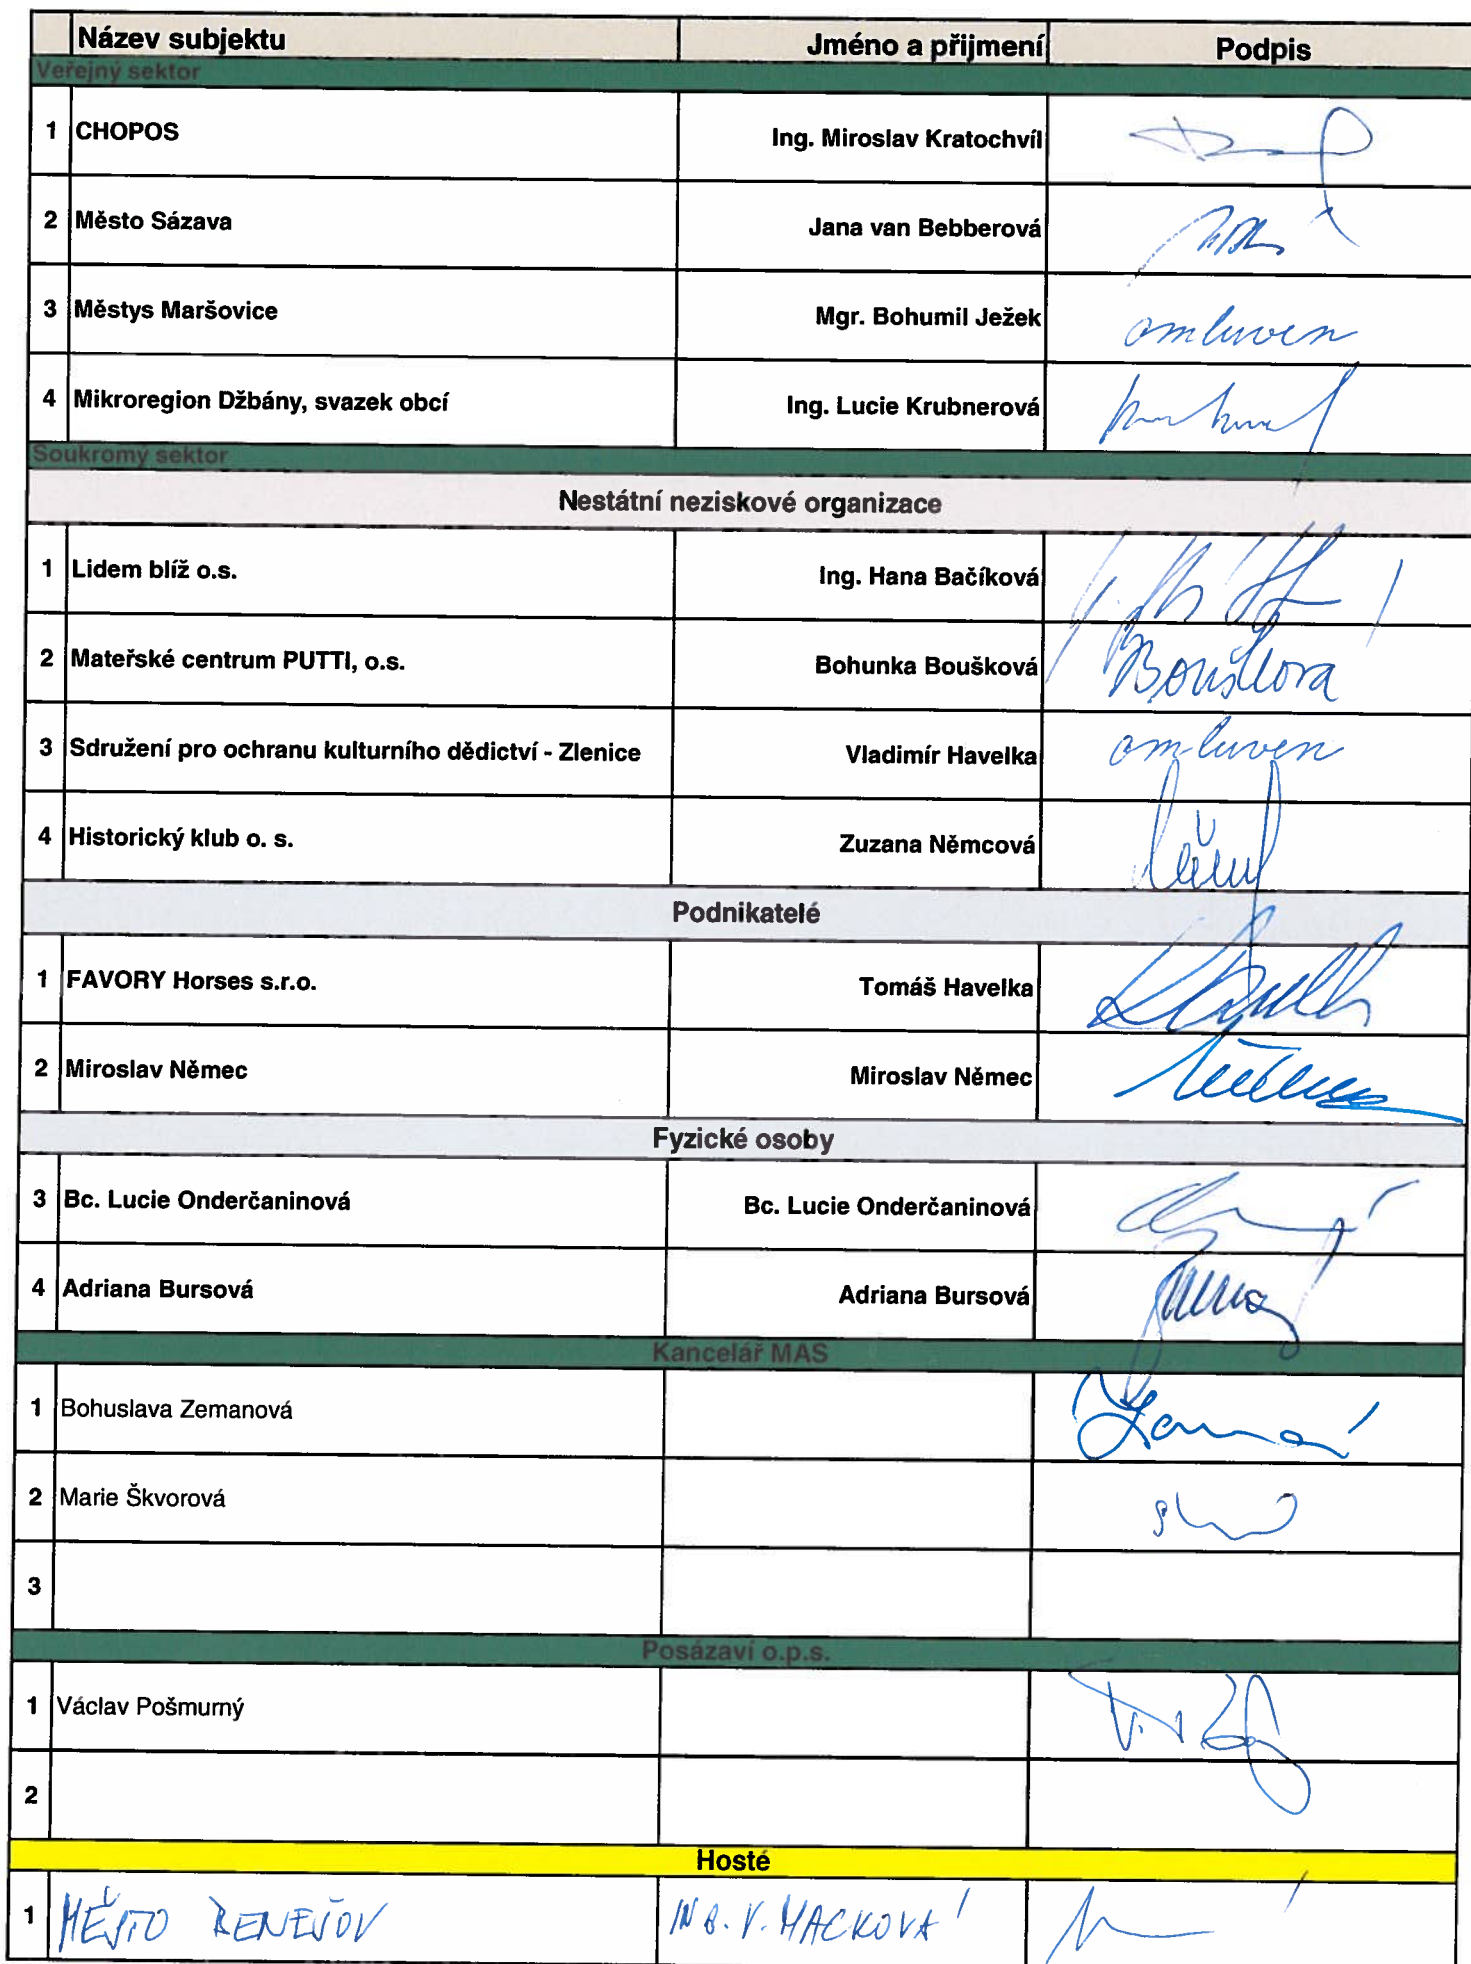 Název subjektu Jméno a přijmení Podpis
Veřejný sektor
1 CHOPOS Ing. Miroslav Kratochvíl
2 Město Sázava Jana van Bebberová
3 Městys Maršovice Mgr. Bohumil Ježek omluven
4 Mikroregion Džbány, svazek obcí Ing. Lucie Krubnerová
Soukromý sektor
Nestátní neziskové organizace
1 Lidem blíž o.s. Ing. Hana Bačíková
2 Mateřské centrum PUTTI, o.s. Bohunka Boušková Boušková
3 Sdružení pro ochranu kulturního dědictví - Zlenice Vladimír Havelka omluven
4 Historický klub o. s. Zuzana Němcová
Podnikatelé
1 FAVORY Horses s.r.o. Tomáš Havelka
2 Miroslav Němec Miroslav Němec
Fyzické osoby
3 Bc. Lucie Onderčaninová Bc. Lucie Onderčaninová
4 Adriana Bursová Adriana Bursová
Kancelář MAS
1 Bohuslava Zemanová
2 Marie Škvorová
3
Posázaví o.p.s.
1 Václav Pošmurný
2
Hosté
1 MĚSTO BENEŠOV ING. V. MACKOVÁ